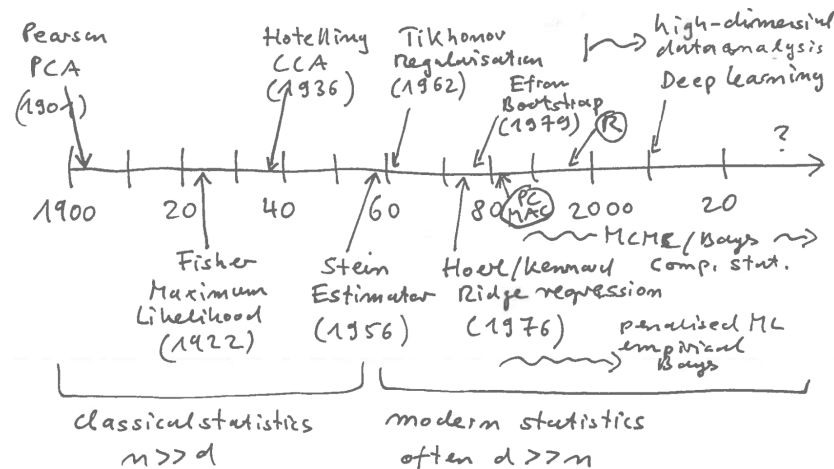 Pearson
PCA
(1901)
Hotelling
CCA
(1936)
Tikhonov
Regularisation
(1962)
Efron
Bootstrap
(1979)
R
high-dimensial
data analysis
Deep learning
?
1900
20
40
60
80
PC
MAC
2000
20
Fisher
Maximum
Likelihood
(1922)
Stein
Estimator
(1956)
Hoerl/Kennard
Ridge regression
(1976)
MCMC/Bays
Comp. stat.
penalised ML
empirical
Bays
classical statistics
n>>d
modern statistics
often d>>n